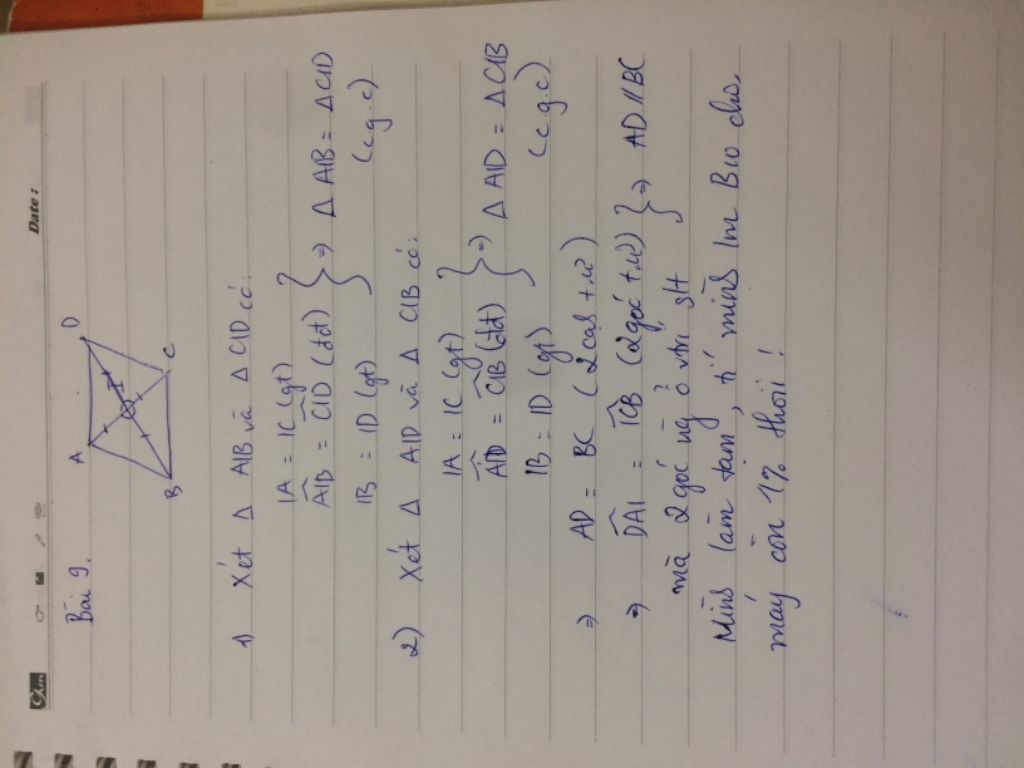 Date:
Bài 9.
A
D
I
B
C
1) Xét Δ AIB và Δ CID có:
IA = IC (gt)
AIB = CID (đđ)
IB = ID (gt)
} => Δ AIB = Δ CID
(c.g.c)
2) Xét Δ AID và Δ CIB có:
IA = IC (gt)
AID = CIB (đđ)
IB = ID (gt)
} => Δ AID = Δ CIB
(c.g.c)
=> AD = BC (2 cạh tứ)
=> DAI = ICB (2 góc tứ)
mà 2 góc ở vtrí slt
} => AD // BC
Mìnś làm tạm, tí mìnś lm Bio cho,
máy còn 1% thôi!